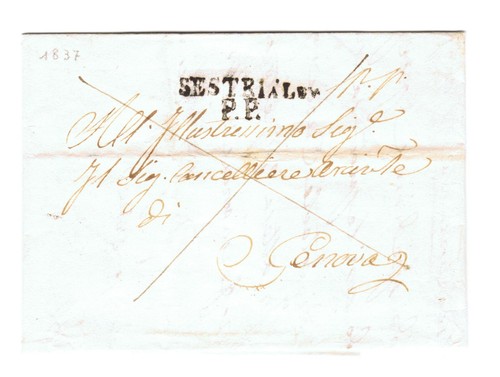 1837
SESTRI A LEV
P.P.
p. p.
All. Illustrissimo Sig.e
Il Sig. Cancelliere
di
Genova